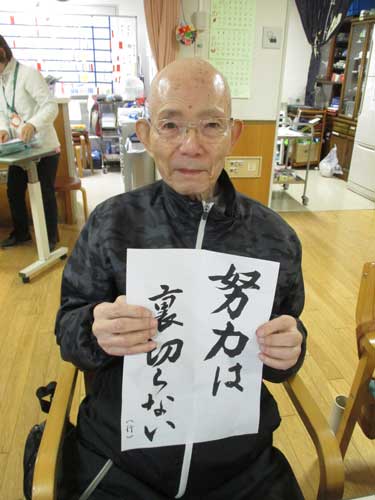 努力は
裏切らない
(行)